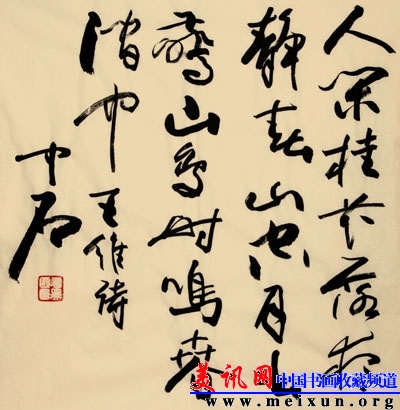 人闲桂花落夜
静春山空月出
驚山鸟时鸣春
涧中 王维诗
中石
美讯网 中国书画收藏频道
www.meixun.org